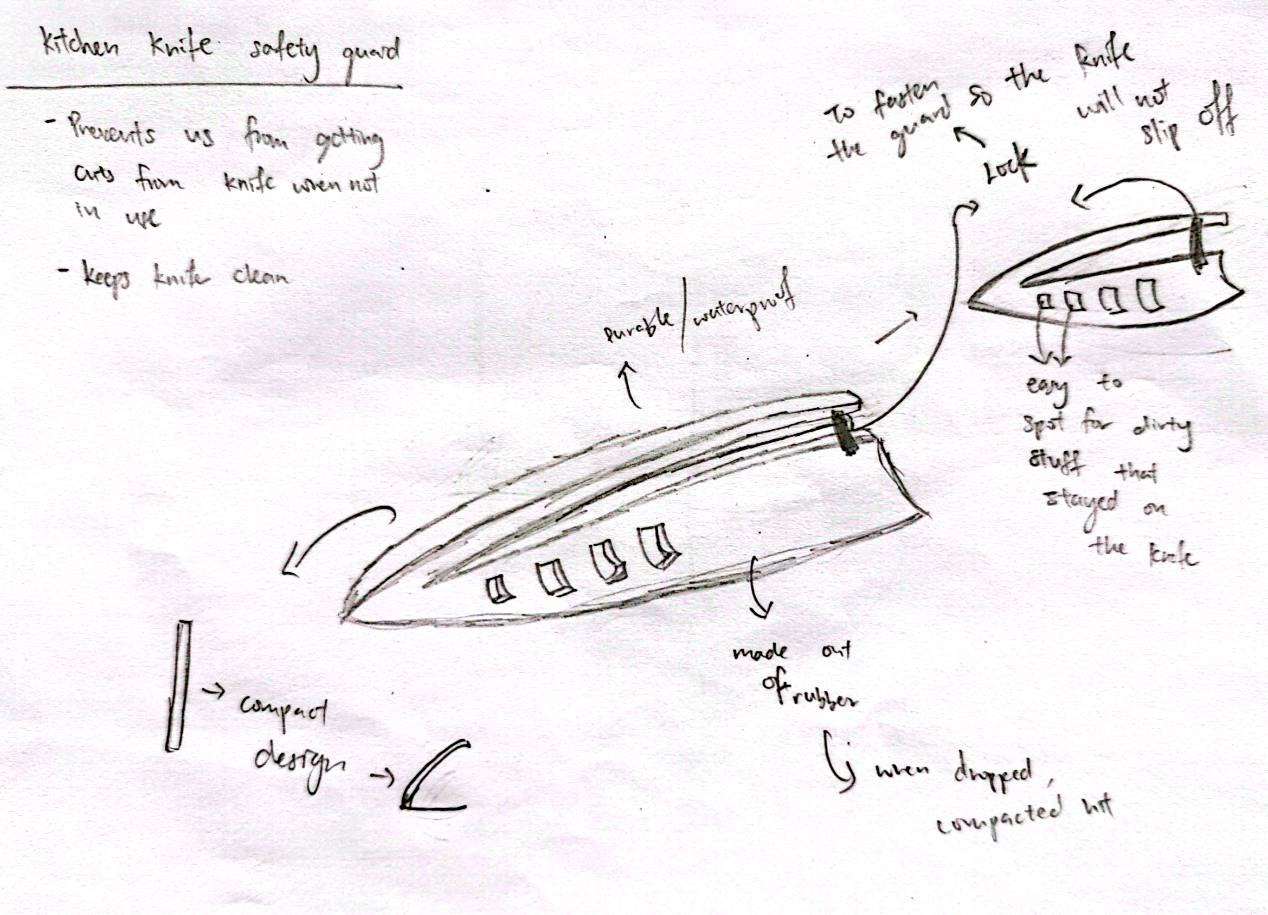 kitchen knife safety guard
- Prevents us from getting
cuts from knife when not
in use
- keeps knife clean
To fasten
the guard so the knife
will not
slip off
Lock
durable/waterproof
easy to
spot for dirty
stuff that
stayed on
the knife
made out
of rubber
when dropped,
compacted hit
compact
design